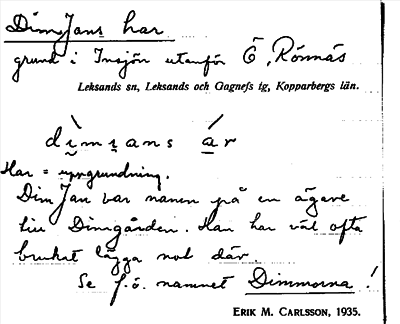 Dim Jans har
grund i Insjön utanför Ö. Rönnäs
Leksands sn, Leksands och Gagnefs tg, Kopparbergs län.
dimians ar
Har = uppgrundning.
Dim Jan var namn på en ägare
till Dimgården. Han har väl ofta
brukat lägga not där.
Se f.ö. namnet Dimmorna!
ERIK M. CARLSSON, 1935.